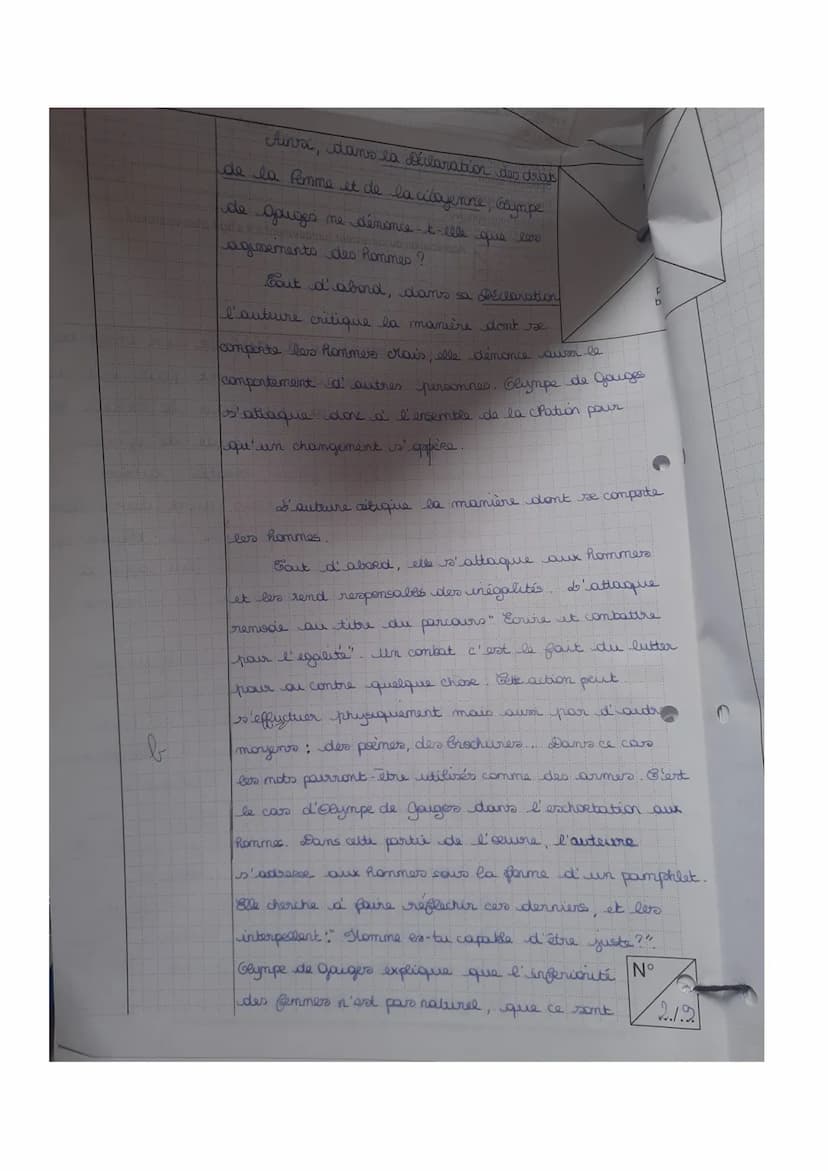 Ainsi, dans la Déclaration des droits
de la Femme et de la citoyenne, Olympe
de Gouges ne dénonce-t-elle que les
agissements des Hommes ?
Tout d'abord, dans sa Déclaration
l'auteure critique la manière dont se
comporte les Hommes Mais, elle dénonce aussi le
comportement d'autres personnes. Olympe de Gouges
s'attaque donc à l'ensemble de la Nation pour
qu'un changement s'opère.
L'auteure critique la manière dont se comporte
les Hommes.
Tout d'abord, elle s'attaque aux Hommes
et les rend responsables des inégalités. L'attaque
remvoie au titre du parcours "Ecrire et combattre
pour l'égalité". Un combat c'est le fait du lutter
pour ou contre quelque chose. Cette action peut
s'effectuer physiquement mais aussi par d'autre
moyens : des poèmes, des brochures... Dans ce cas
les mots pourront-être utilisés comme des armes. C'est
le cas d'Olympe de Gouges dans l'exhortation aux
Hommes. Dans cette partie de l'œuvre, l'auteure
s'adresse aux hommes sous la forme d'un pamphlet.
Elle cherche à faire réflechir ces derniers, et les
interpellent : "Homme es-tu capable d'être juste ?".
Olympe de Gouges explique que l'inferiorité
des femmes n'est pas naturel, que ce sont
b
N°
2/9